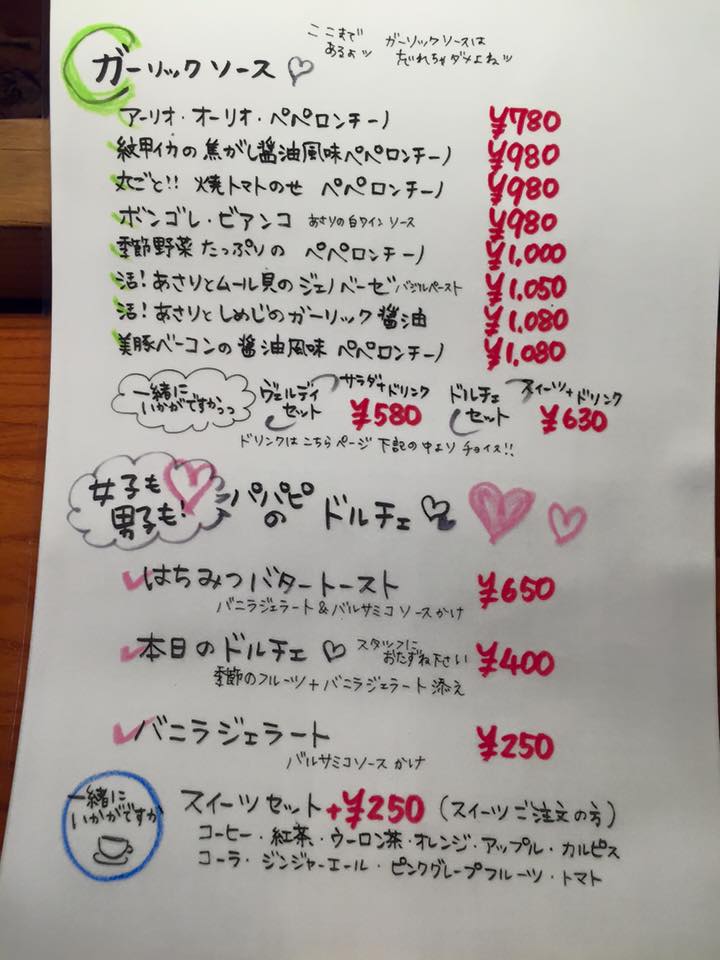 ここまで ガーリックソースは
あるよッ だれちゃダメよねッ
ガーリックソース
アーリオ・オーリオ・ペペロンチーノ ¥780
紋甲イカの焦がし醤油風味ペペロンチーノ ¥980
丸ごと!! 焼トマトのせ ペペロンチーノ ¥980
ボンゴレ・ビアンコ あさりの白ワインソース ¥980
季節野菜たっぷりの ペペロンチーノ ¥1,000
活!あさりとムール貝のジェノベーゼ バジルペースト ¥1,050
活!あさりとしめじのガーリック醤油 ¥1,080
美豚ベーコンの醤油風味 ペペロンチーノ ¥1,080
一緒に
いかがですかっっ
ヴェルディ サラダ+ドリンク
セット ¥580
ドルチェ スイーツ+ドリンク
セット ¥630
ドリンクはこちらページ 下記の中より チョイス!!
女子も
男子も!
パパピの ドルチェ
はちみつバタートースト ¥650
バニラジェラート&バルサミコソースかけ
本日のドルチェ スタッフに おたずね下さい ¥400
季節のフルーツ+バニラジェラート添え
バニラジェラート ¥250
バルサミコソースかけ
一緒に
いかがですか
スイーツセット+¥250 (スイーツご注文の方)
コーヒー・紅茶・ウーロン茶・オレンジ・アップル・カルピス
コーラ・ジンジャーエール・ピンクグレープフルーツ・トマト